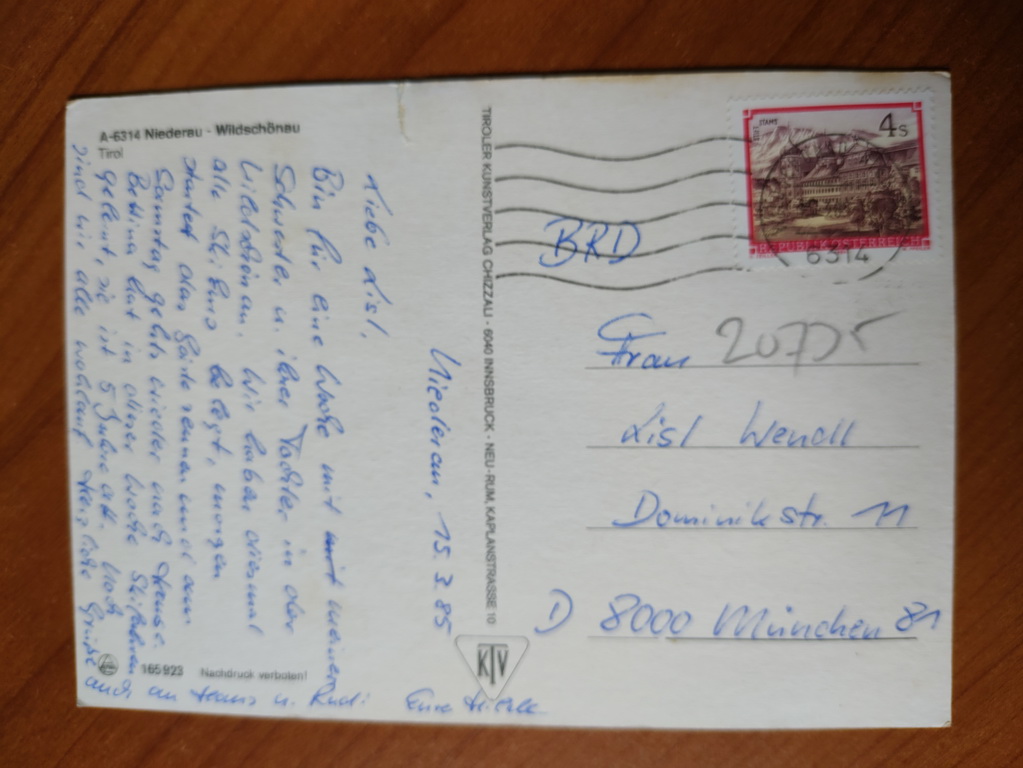 A-6314 Niederau - Wildschönau
Tirol
Niederau, 15. 3. 85
Liebe Lisl,
Bin für eine Woche mit meiner
Schwester u. ihrer Tochter in der
Wildschönau. Wir haben diesmal
alle Skikurs belegt, morgen
startet das Gästerennen und am
Samstag gehts wieder nach Hause.
Bettina hat in dieser Woche Skifahren
gelernt, sie ist 5 Jahre alt. Noch
sind wir alle wohlauf Herzliche Grüße
auch an Hans u. Rudi
Eure
165 923 Nachdruck verboten!
TIROLER KUNSTVERLAG CHIZZALI · 6040 INNSBRUCK - NEU-RUM, KAPLANSTRASSE 10
KTV
STAMS
4 S
REPUBLIK ÖSTERREICH
6314
BRD
Frau
Lisl Wendl
Dominikstr. 11
D 8000 München 81